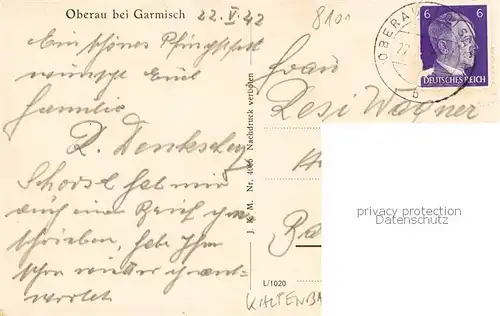 Oberau bei Garmisch
22. V. 42
8101
Ein schönes Pfingstfest
wünscht Eine
Familie
R.
Schorsl hat mir
auch einen Brief ge
schrieben, habe Ihm
schon wieder geant
wortet
J. K. M. Nr. 4066 Nachdruck verboten
OBERAU
b
6 6
DEUTSCHES REICH
Frau
Resi Wagner
privacy protection
Datenschutz
L/1020
KALTENBA